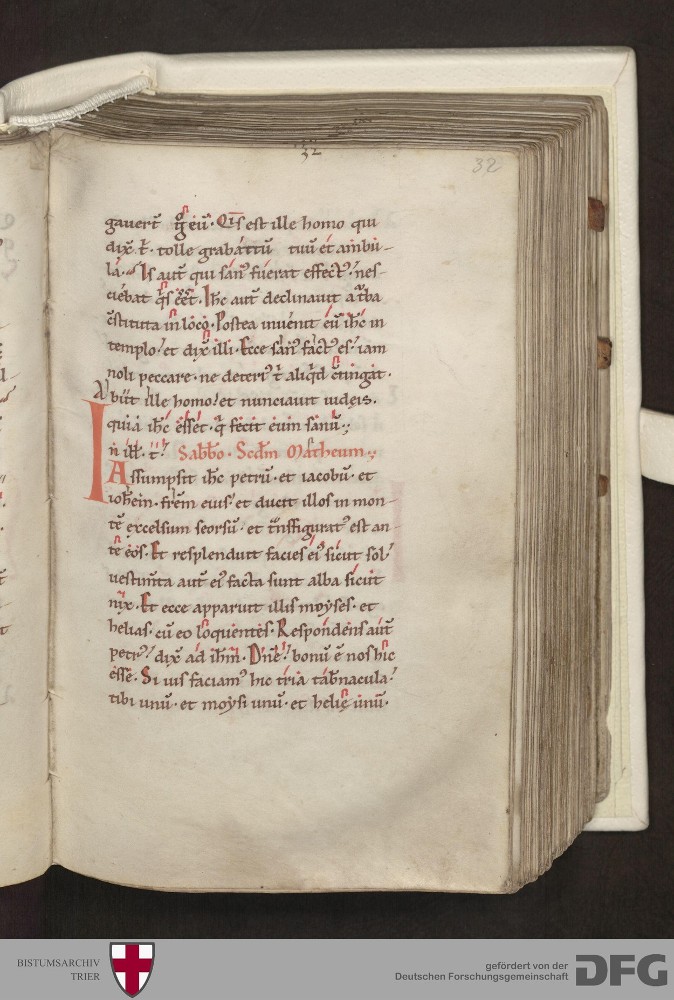 32
32
gauert̄ g̊ eū. Qis est ille homo qui
dix̄ t̄. tolle grabattū tuū et ambu-
la. Is aut̄ qui san᾽ fuerat effect᾽. nes-
ciebat q̄s eēt. Ihc aut̄ declinauit a t̄ba
c̄stituta in loco. Postea inuenit eū ihc in
templo. et dix̄ illi. Ecce san᾽ fact᾽ es. iam
noli peccare. ne deteri᾽ t̄ aliqd c̄tingat.
Abiit ille homo. et nunciauit iudeis.
quia ihc esset. q̄ fecit eum sanū.
In ill̄. t̄. Sabb̄o. Scdm Matheum.
Assumpsit ihc petrū. et iacobū. et
ioh̄em. fr̄em eius. et ducit illos in mon-
tē excelsum seorsū. et t̄nsfigurat᾽ est an-
te eos. Et resplenduit facies ei᾽ sicut sol.
uestim̄ta aut̄ ei᾽ facta sunt alba sicut
nix. Et ecce apparuit illis moyses. et
helias. cū eo loquentes. Respondens aut̄
petr᾽. dix̄ ad ihm̄. Dn̄e. bonū ē nos hic
esse. Si uis faciam᾽ hic tria tab̄nacula.
tibi unū. et moysi unū. et helię unū.
BISTUMSARCHIV
TRIER
gefördert von der
Deutschen Forschungsgemeinschaft
DFG